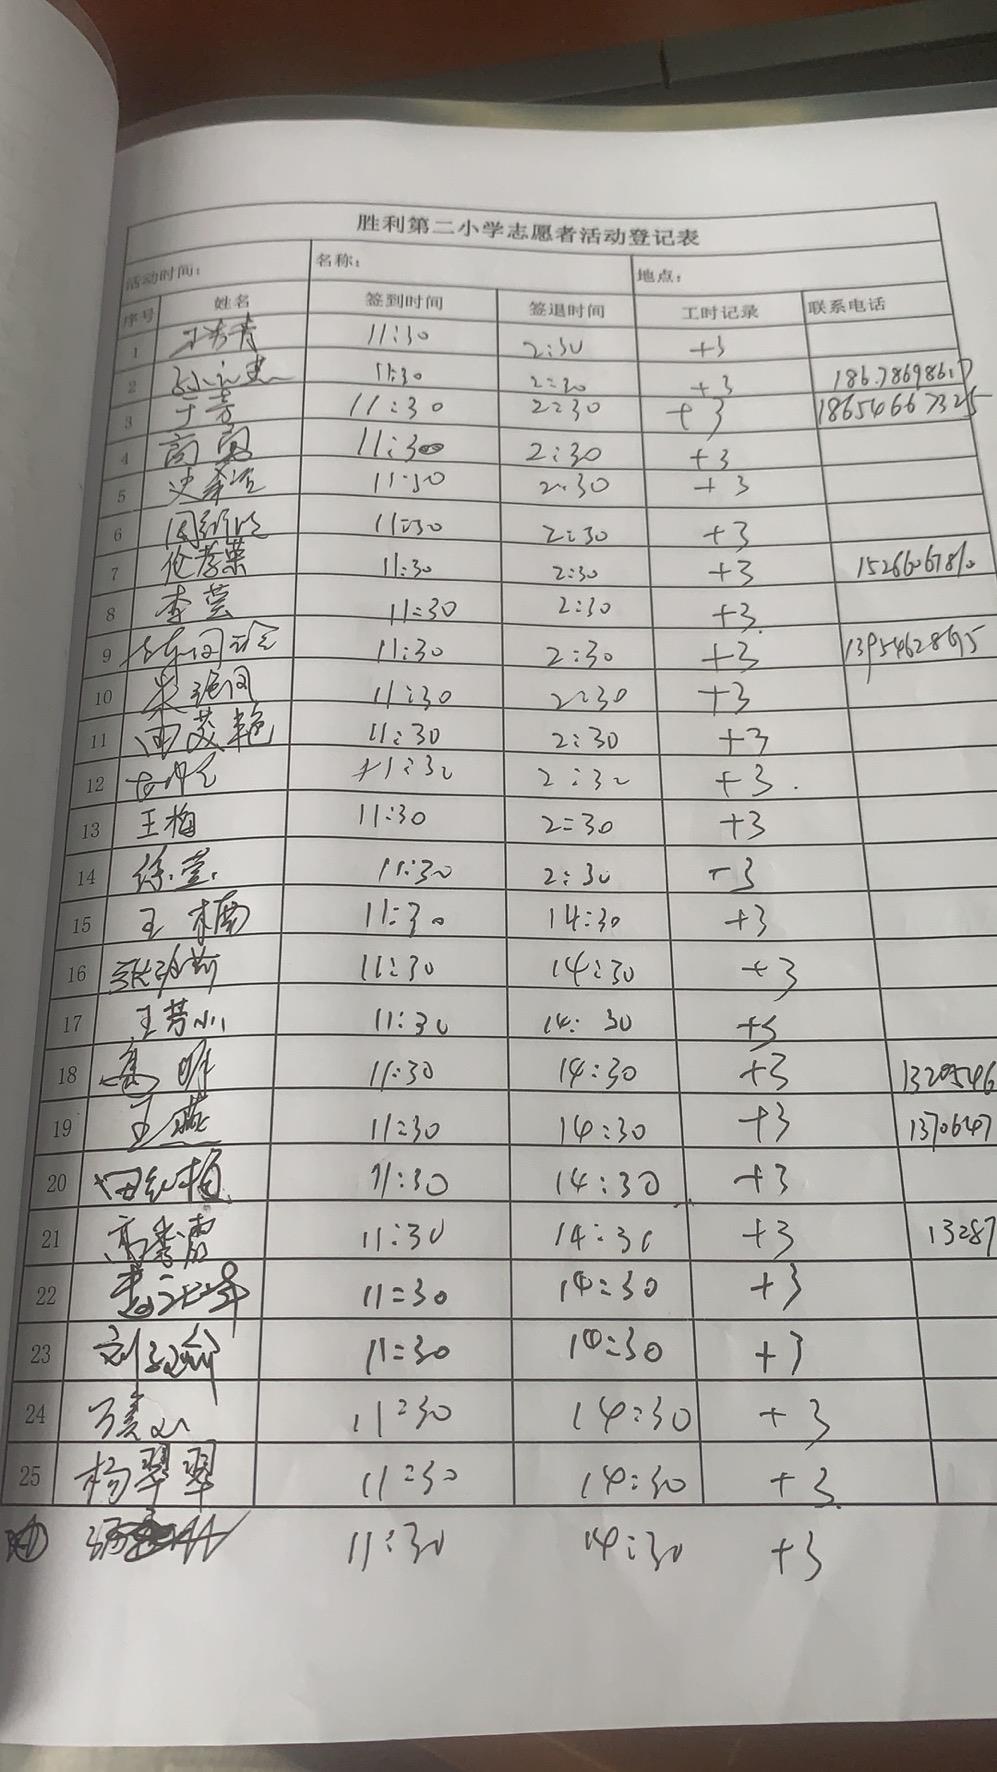 胜利第二小学志愿者活动登记表
活动时间： 名称： 地点：
序号 姓名 签到时间 签退时间 工时记录 联系电话
1 11:30 2:30 +3
2 11:30 2:30 +3
3 于亮 11:30 2:30 +3 18654667325
4 11:30 2:30 +3
5 11:30 2:30 +3
6 11:30 2:30 +3
7 11:30 2:30 +3
8 李芸 11:30 2:30 +3
9 11:30 2:30 +3
10 11:30 2:30 +3
11 田茂艳 11:30 2:30 +3
12 11:30 2:30 +3
13 王梅 11:30 2:30 +3
14 徐萱 11:30 2:30 +3
15 王楠 11:30 14:30 +3
16 11:30 14:30 +3
17 王芳 11:30 14:30 +3
18 11:30 14:30 +3 1320546
19 王燕 11:30 14:30 +3 1370647
20 田红梅 11:30 14:30 +3
21 高秀霞 11:30 14:30 +3 13287
22 11:30 14:30 +3
23 11:30 14:30 +3
24 11:30 14:30 +3
25 杨翠翠 11:30 14:30 +3
11:30 14:30 +3